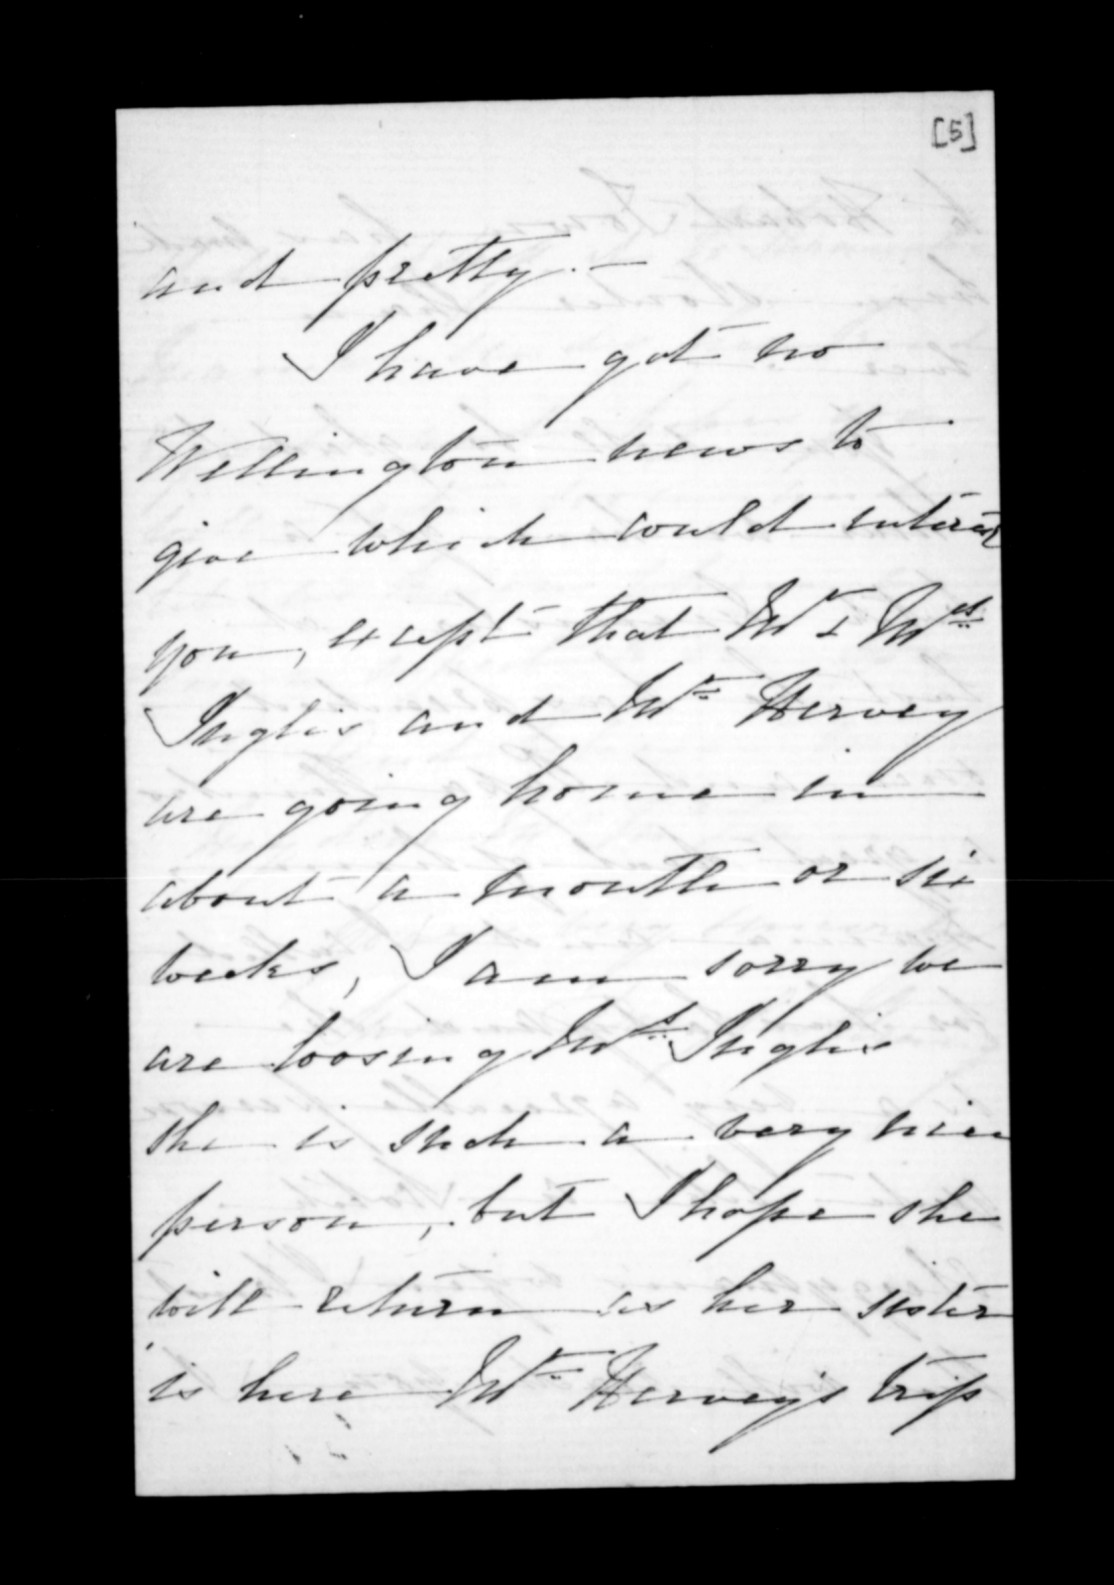 [5]
and pretty. —
I have got no
Wellington news to
give which would interest
you, except that Mr & Mrs
Inglis and Mr Hervey
are going home in
about a month or six
weeks, I am sorry we
are loosing Mrs Inglis
she is such a very nice
person, but I hope she
will return as her sister
is here Mr Hervey's trip